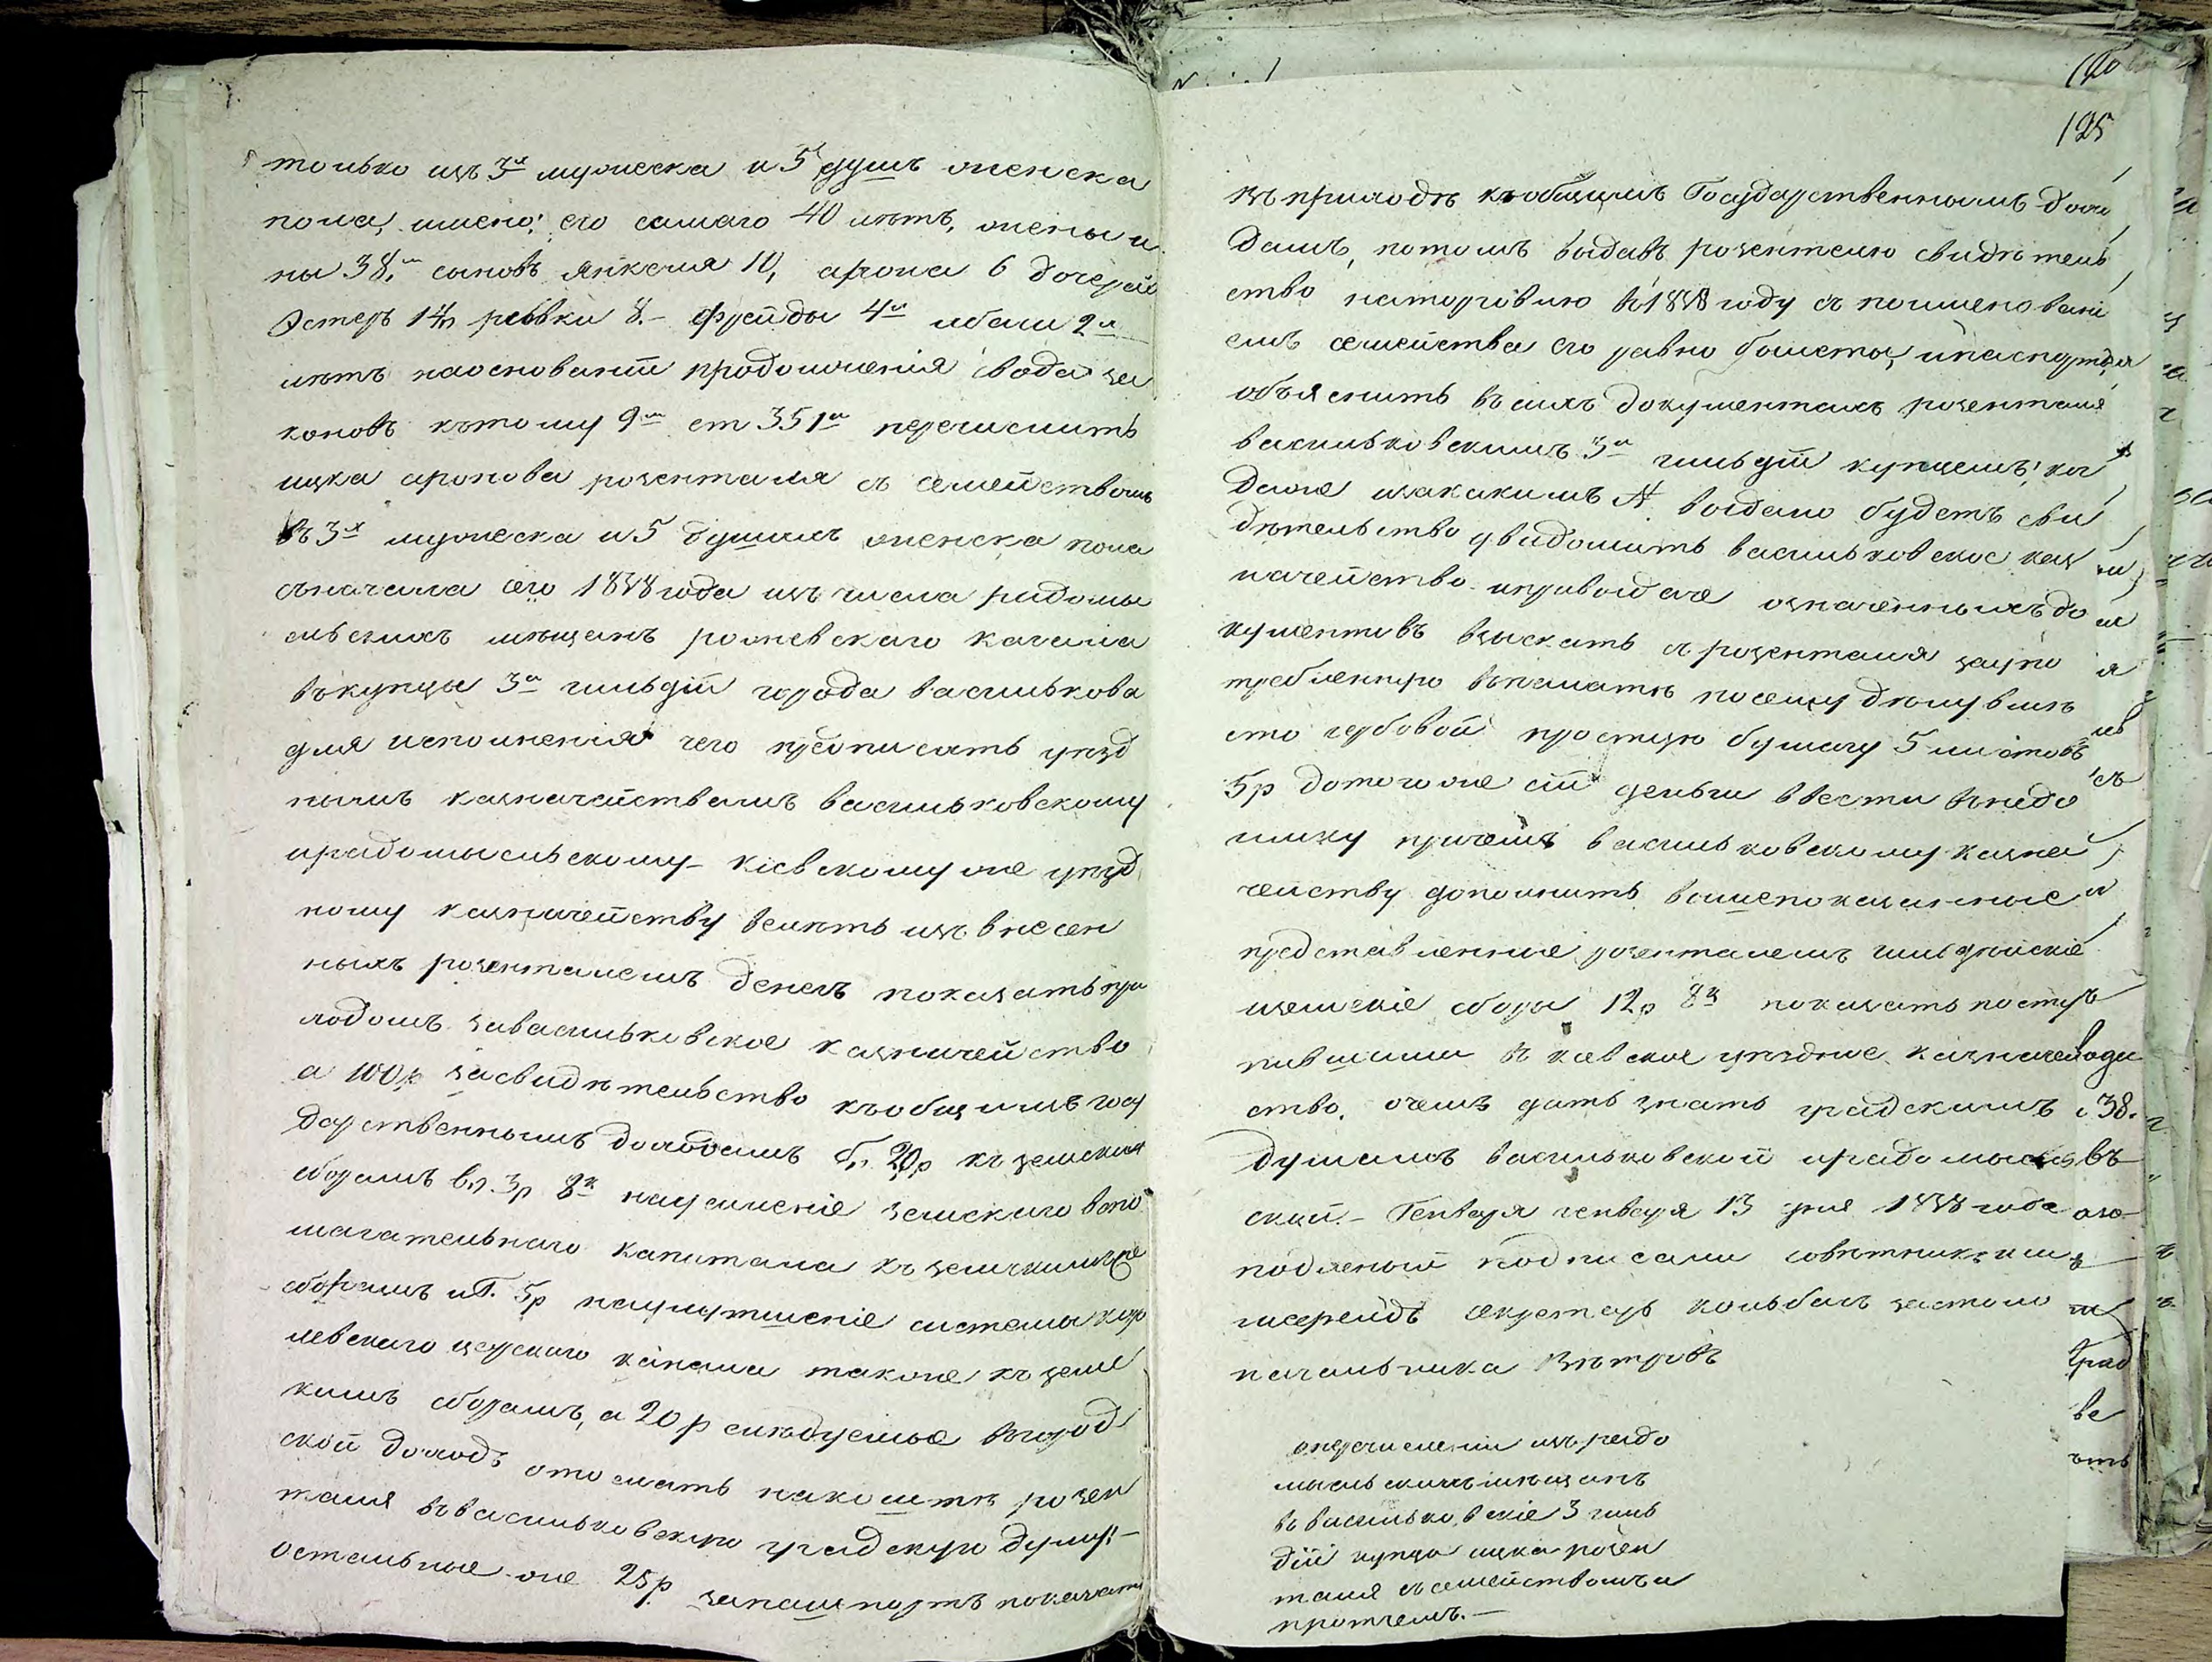 только изъ 3х мужеска и 5 душъ женска
пола, имено: его самаго 40 лѣтъ, жены
ны 38, сыновъ Янкеля 10, арона 6 дочерей
Эстеръ 14, ревки 8.- Фрейды 4х и баси 2х
лѣтъ наоснованіи продолженія свода за
коновъ ктому 9м ст 351й перечислить
ицка аронова розенталя съ семействомъ
въ 3х мужеска и 5 душахъ женска пола
сначала сего 1838 года изъ числа радомы
сльскихъ мѣщанъ рожевскаго кагала
въкупцы 3й гильдіи города василькова
для исполненія чего предписать уѣзд
нымъ казначействамъ васильковскому
ирадомысльскому- кіевскому же уѣзд
ному казначейству велить изъ внесен
ныхъ розенталемъ денегъ показать при
ходомъ завасильковское казначейство
а 100р засвидѣтельство кобщимъ госу
дарственнымъ доходамъ б., 20р къ земскимъ
сборамъ в., 3р 8к науси­леніе земскаго вспо
магательнаго капитала къ земскимъ же
сборамъ иГ. 5р наулутшеніе системы
левскаго канала также къ земс
кимъ сборамъ, а 20р слѣдуемые въгород
ской доходъ отослать насчетъ розен
таля въвасильковскую градскую думу:-
остальные же 25р запашпортъ показать
125
въприходъ кобщимъ Государственнымъ дохо
дамъ, потомъ выдавъ розенталю свидѣтель
ство наторговлю въ 1838 году съ поименовані
емъ семейства его равно билеты, ипаспорта
объяснить въсихъ документахъ розенталя
васильковскимъ 3й гильдіи купцемъ; ког
даже изакакимъ № выдано будетъ сви
дѣтельство увѣдомить васильковское каз
начейство ипривыдаче означенныхъ до
кументовъ взыскать съ розенталя заупо
требленную въпалатѣ посему дѣлу вмѣ
сто гербовой простую бумагу 5 листовъ
5р дотогоже сіи деньги ввести внедо
имку причемъ васильковскому казна
чейству дополнить вышепоказанные
представленные розенталемъ гильдейскіе
иземскіе сборы 12р 8к показать посту
пившими въ кіевское уѣздное казначей
ство. очемъ дать знать градскимъ
думамъ васильковской ирадомысль
ской.- Генваря генваря 13 дня 1838 года
подленый подписали совѣтник
секретарь застоло
начальника Вѣтровъ
оперечисленіи изъ радо
мысльскихъ мѣщанъ
въ васильковскіе 3 гиль
діи купцы ицка розен
таля съсемействомъ и
протчемъ.-